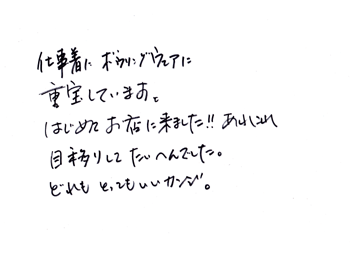 仕事着に ボウリングウェアに
重宝しています。
はじめて お店に来ました!! あれこれ
目移りして たいへんでした。
どれも とってもいいカンジ。